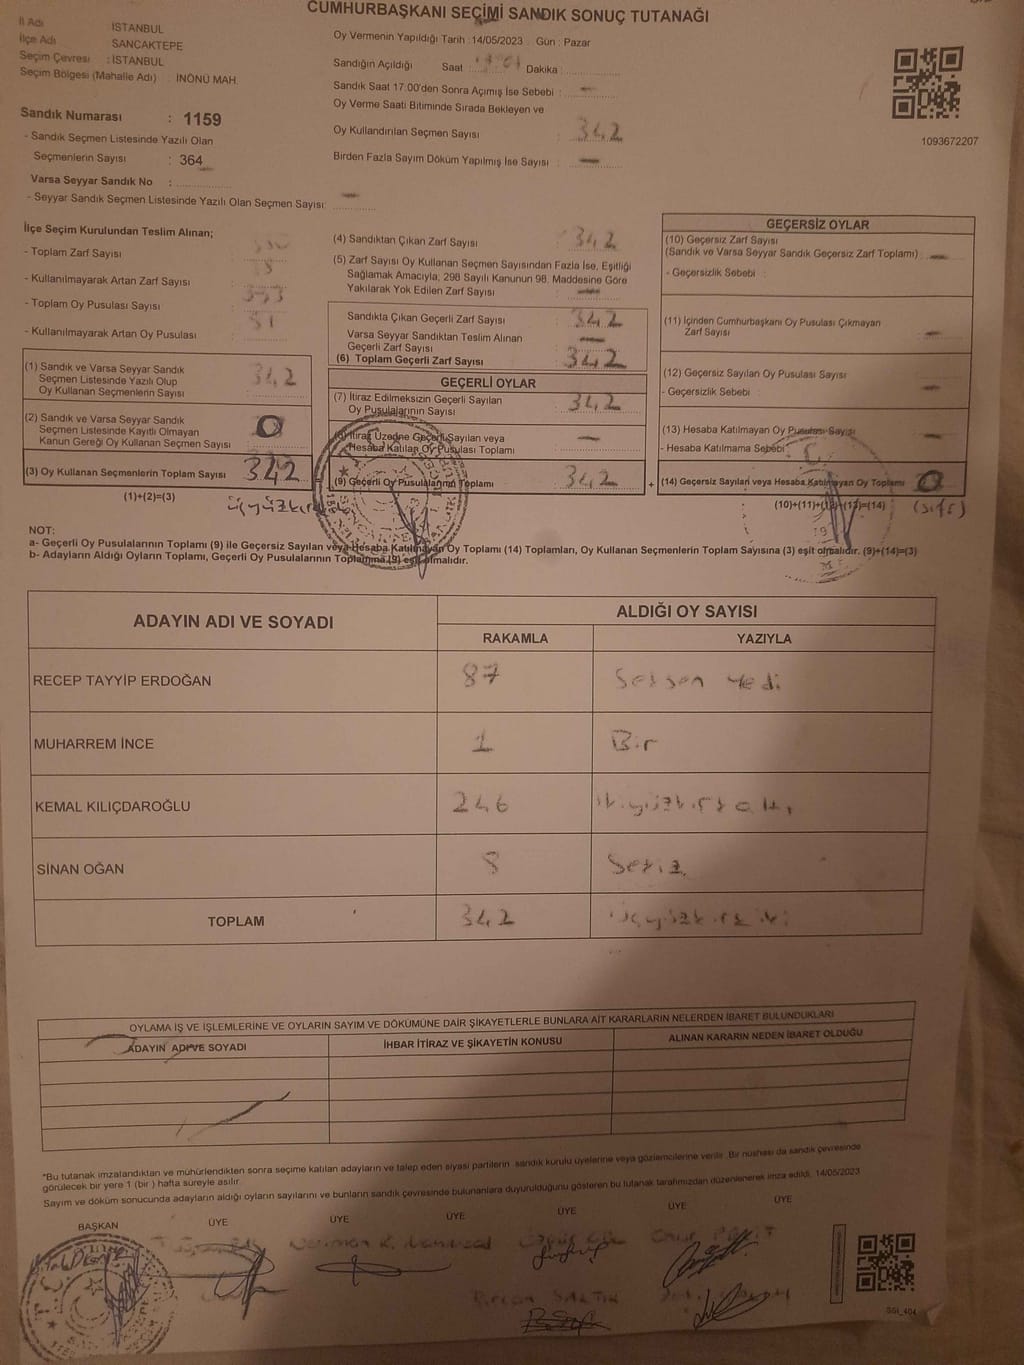 CUMHURBAŞKANI SEÇİMİ SANDIK SONUÇ TUTANAĞI
İl Adı İSTANBUL
İlçe Adı SANCAKTEPE
Seçim Çevresi : İSTANBUL
Seçim Bölgesi (Mahalle Adı) : İNÖNÜ MAH.
Oy Vermenin Yapıldığı Tarih : 14/05/2023 Gün : Pazar
Sandığın Açıldığı Saat : Dakika :
Sandık Saat 17.00'den Sonra Açımış İse Sebebi :
Oy Verme Saati Bitiminde Sırada Bekleyen ve
Oy Kullandırılan Seçmen Sayısı : 342
Birden Fazla Sayım Döküm Yapılmış İse Sayısı :
1093672207
Sandık Numarası : 1159
- Sandık Seçmen Listesinde Yazılı Olan
Seçmenlerin Sayısı : 364
Varsa Seyyar Sandık No :
- Seyyar Sandık Seçmen Listesinde Yazılı Olan Seçmen Sayısı:
İlçe Seçim Kurulundan Teslim Alınan;
- Toplam Zarf Sayısı :
- Kullanılmayarak Artan Zarf Sayısı :
- Toplam Oy Pusulası Sayısı :
- Kullanılmayarak Artan Oy Pusulası : 51
(1) Sandık ve Varsa Seyyar Sandık
Seçmen Listesinde Yazılı Olup
Oy Kullanan Seçmenlerin Sayısı : 342
(2) Sandık ve Varsa Seyyar Sandık
Seçmen Listesinde Kayıtlı Olmayan
Kanun Gereği Oy Kullanan Seçmen Sayısı : 0
(3) Oy Kullanan Seçmenlerin Toplam Sayısı : 342
(1)+(2)=(3)
(4) Sandıktan Çıkan Zarf Sayısı : 342
(5) Zarf Sayısı Oy Kullanan Seçmen Sayısından Fazla İse, Eşitliği
Sağlamak Amacıyla, 298 Sayılı Kanunun 98. Maddesine Göre
Yakılarak Yok Edilen Zarf Sayısı :
Sandıkta Çıkan Geçerli Zarf Sayısı : 342
Varsa Seyyar Sandıktan Teslim Alınan
Geçerli Zarf Sayısı :
(6) Toplam Geçerli Zarf Sayısı : 342
GEÇERLİ OYLAR
(7) İtiraz Edilmeksizin Geçerli Sayılan
Oy Pusulalarının Sayısı : 342
(8) İtiraz Üzerine Geçerli Sayılan veya
Hesaba Katılan Oy Pusulası Toplamı :
(9) Geçerli Oy Pusulalarının Toplamı : 342 +
GEÇERSİZ OYLAR
(10) Geçersiz Zarf Sayısı
(Sandık ve Varsa Seyyar Sandık Geçersiz Zarf Toplamı) :
- Geçersizlik Sebebi :
(11) İçinden Cumhurbaşkanı Oy Pusulası Çıkmayan
Zarf Sayısı :
(12) Geçersiz Sayılan Oy Pusulası Sayısı :
- Geçersizlik Sebebi :
(13) Hesaba Katılmayan Oy Pusulası Sayısı :
- Hesaba Katılmama Sebebi :
(14) Geçersiz Sayılan veya Hesaba Katılmayan Oy Toplamı : 0
(10)+(11)+(12)+(13)=(14) (sıfır)
NOT:
a- Geçerli Oy Pusulalarının Toplamı (9) ile Geçersiz Sayılan veya Hesaba Katılmayan Oy Toplamı (14) Toplamları, Oy Kullanan Seçmenlerin Toplam Sayısına (3) eşit olmalıdır. (9)+(14)=(3)
b- Adayların Aldığı Oyların Toplamı, Geçerli Oy Pusulalarının Toplamına (9) eşit olmalıdır.
ADAYIN ADI VE SOYADI ALDIĞI OY SAYISI
RAKAMLA YAZIYLA
RECEP TAYYİP ERDOĞAN 87 Seksen Yedi
MUHARREM İNCE 1 Bir
KEMAL KILIÇDAROĞLU 246 ikiyüzkırkaltı
SİNAN OĞAN 8 Sekiz
TOPLAM 342 üçyüzkırkiki
OYLAMA İŞ VE İŞLEMLERİNE VE OYLARIN SAYIM VE DÖKÜMÜNE DAİR ŞİKAYETLERLE BUNLARA AİT KARARLARIN NELERDEN İBARET BULUNDUKLARI
ADAYIN ADI VE SOYADI İHBAR İTİRAZ VE ŞİKAYETİN KONUSU ALINAN KARARIN NEDEN İBARET OLDUĞU
*Bu tutanak imzalandıktan ve mühürlendikten sonra seçime katılan adayların ve talep eden siyasi partilerin sandık kurulu üyelerine veya gözlemcilerine verilir. Bir nüshası da sandık çevresinde
görülecek bir yere 1 (bir ) hafta süreyle asılır.
Sayım ve döküm sonucunda adayların aldığı oyların sayılarını ve bunların sandık çevresinde bulunanlara duyurulduğunu gösteren bu tutanak tarafımızdan düzenlenerek imza edildi. 14/05/2023
BAŞKAN ÜYE ÜYE ÜYE ÜYE ÜYE ÜYE
SSİ_404